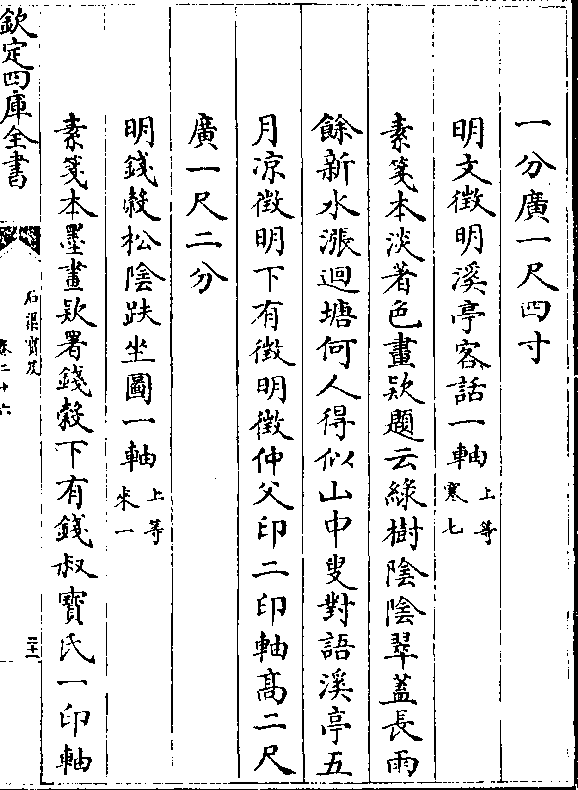 一分廣一尺四寸
明文徵明溪亭客話一軸上等寒七
素箋本淡著色畫欵題云綠樹陰陰翠蓋長雨
餘新水漲迴塘何人得似山中叟對語溪亭五
月凉徵明下有徵明徵仲父印二印軸髙二尺
廣一尺二分
明錢穀松陰趺坐圖一軸上等來一
素箋本墨畫欵署錢穀下有錢叔寶氏一印軸
欽定四庫全書
石渠寳笈
卷二十六